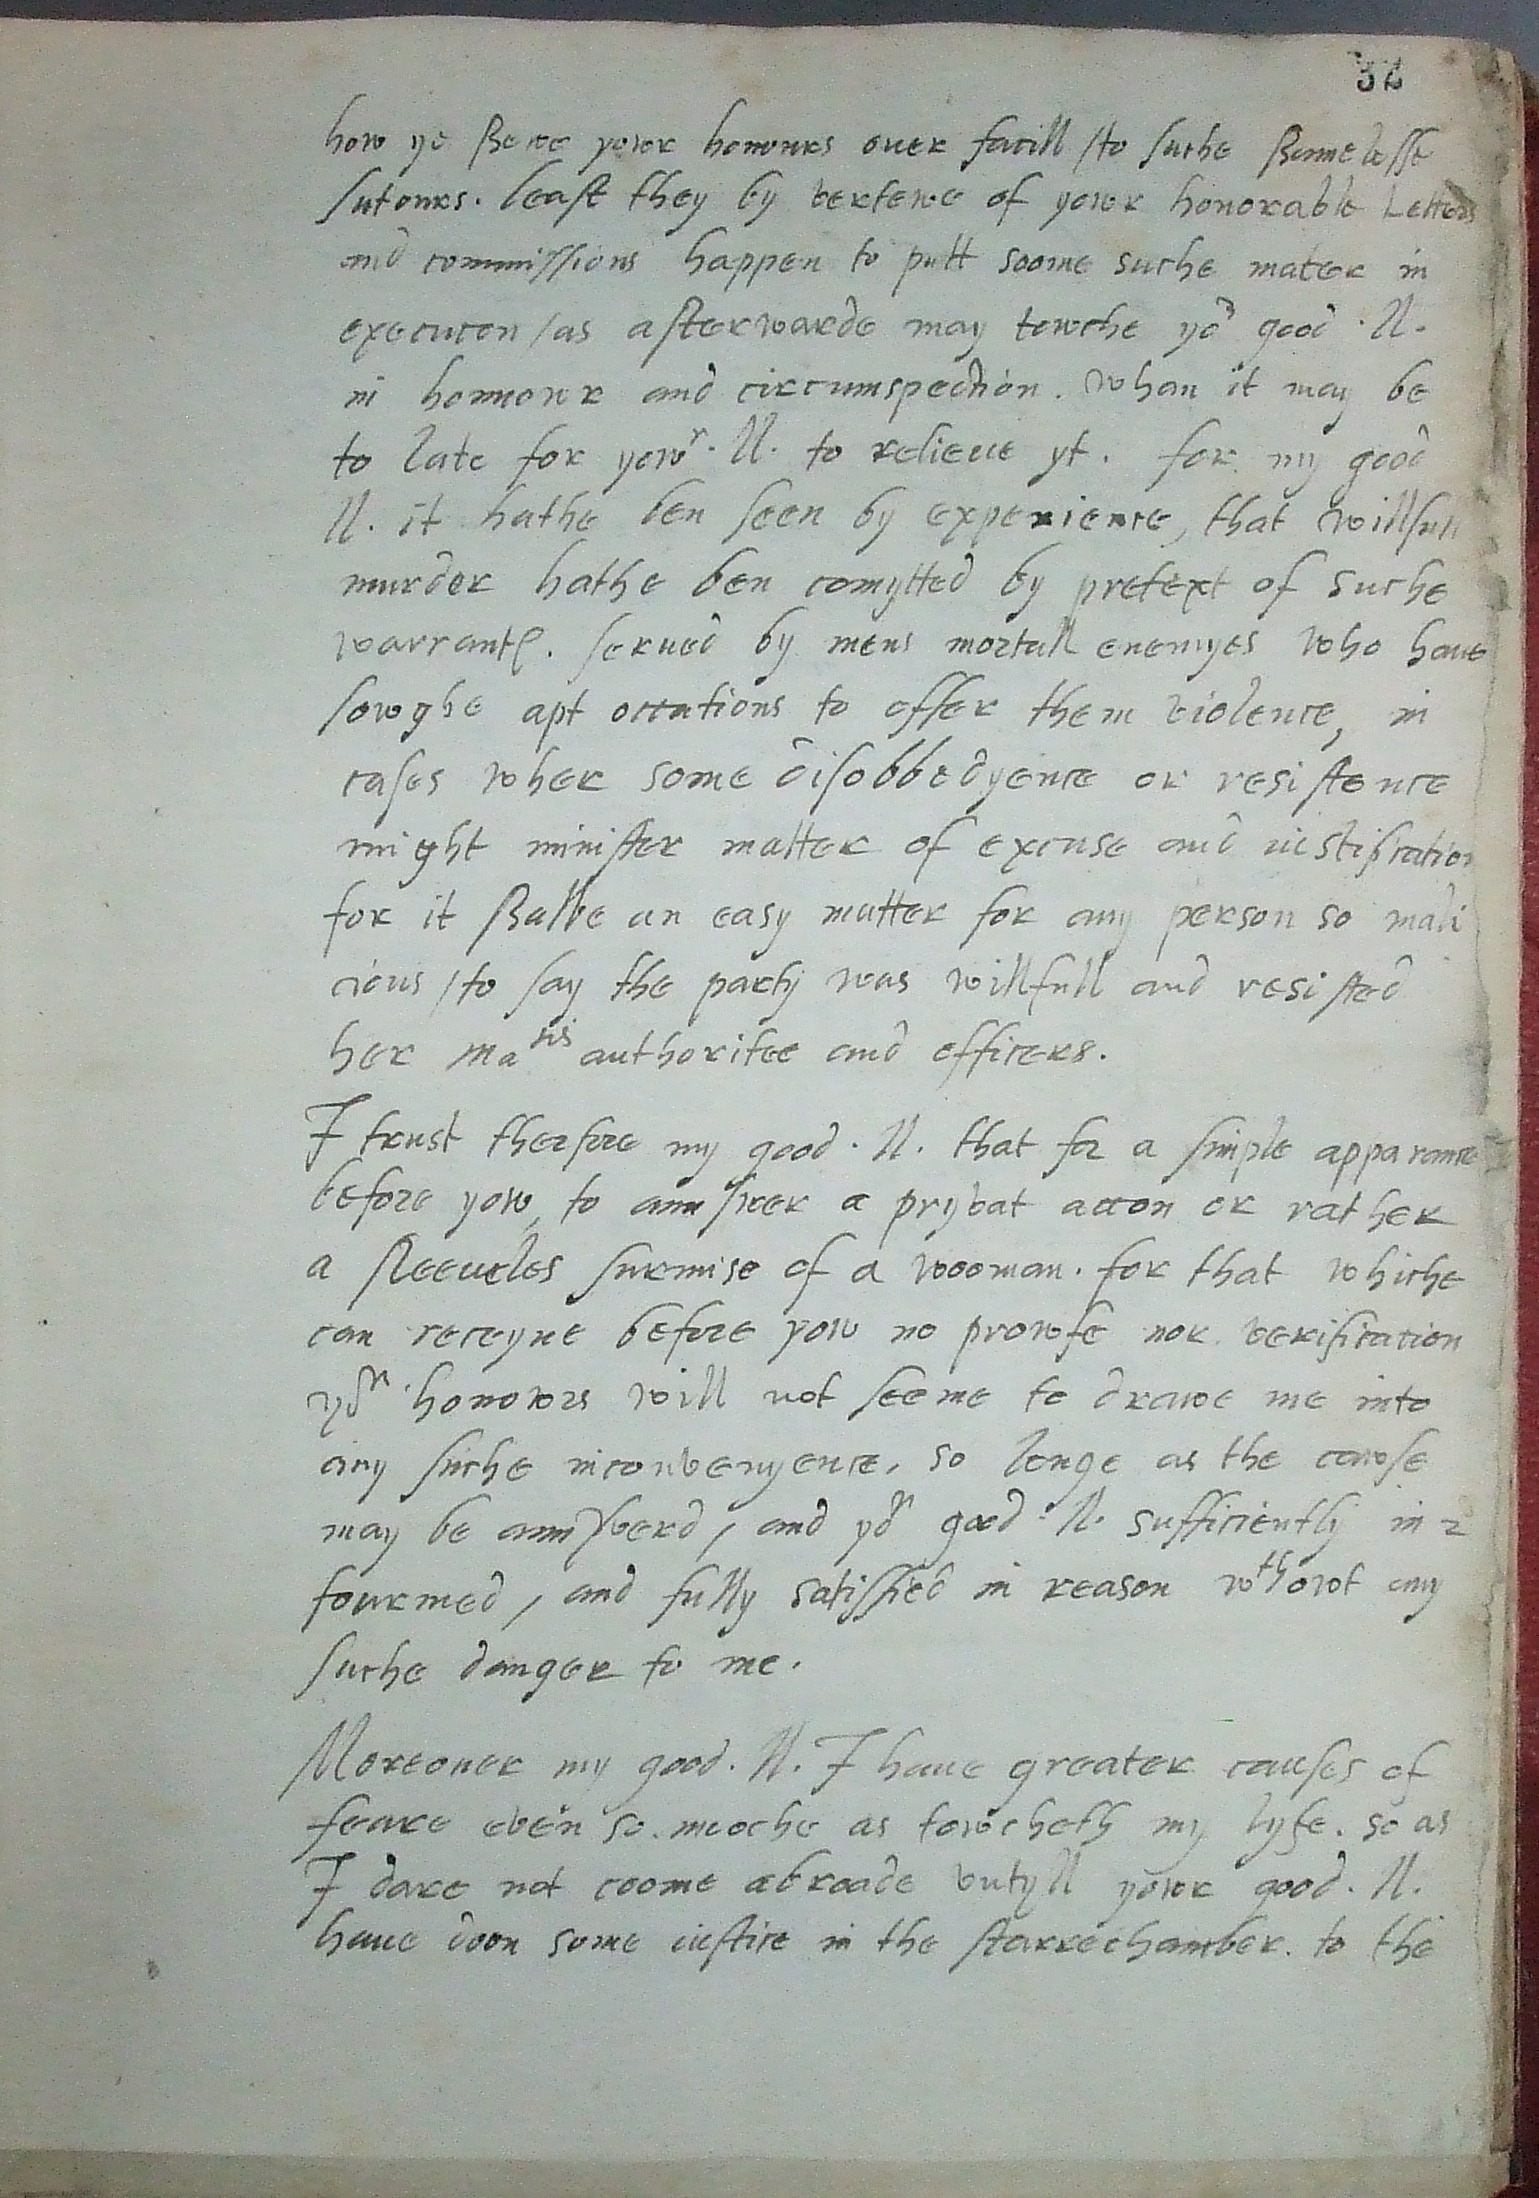 32
how ye shewe yowr honours over facill / to suche shamelesse
sutours. least they by vertewe of yowr honorable Letters
and commissions happen to putt soome suche mater in
executon / as afterwarde may towche yor good .ll.
in honnour and circumspection. Whan it may be
to late for yowr .ll. to relieue yt. for my good
ll. it hathe ben seen by experience, that willfull
murder hathe ben comytted by pretext of suche
warrantes. serued by mens mortall enemyes who haue
sowghe apt occations to offer them violence, in
cases wher some disobbedyence or resistence
might minister matter of excuse and iustification
for it shalbe an easy matter for any person so mali
cious / to say the party was willfull and resisted
her matis authoritee and officers.
I trust therfore my good .ll. that for a simple apparance
before yow, to annswer a pryvat accon or rather
a sleeveles surmise of a wooman. for that whiche
can receyue before yow no prowfe nor verification
yor honowrs will not seeme to drawe me into
any suche inconvenyence, so longe as the cawse
may be annswerd, and yor good .ll. sufficiently in=
fourmed, and fully satisfied in reason wthowt any
suche danger to me.
Moreouer my good .ll. I haue greater causes of
feare even so muoche as towcheth my lyfe. so as
I dare not coome abroade vntyll yowr good .ll.
haue doon some iustice in the starrechamber. to the